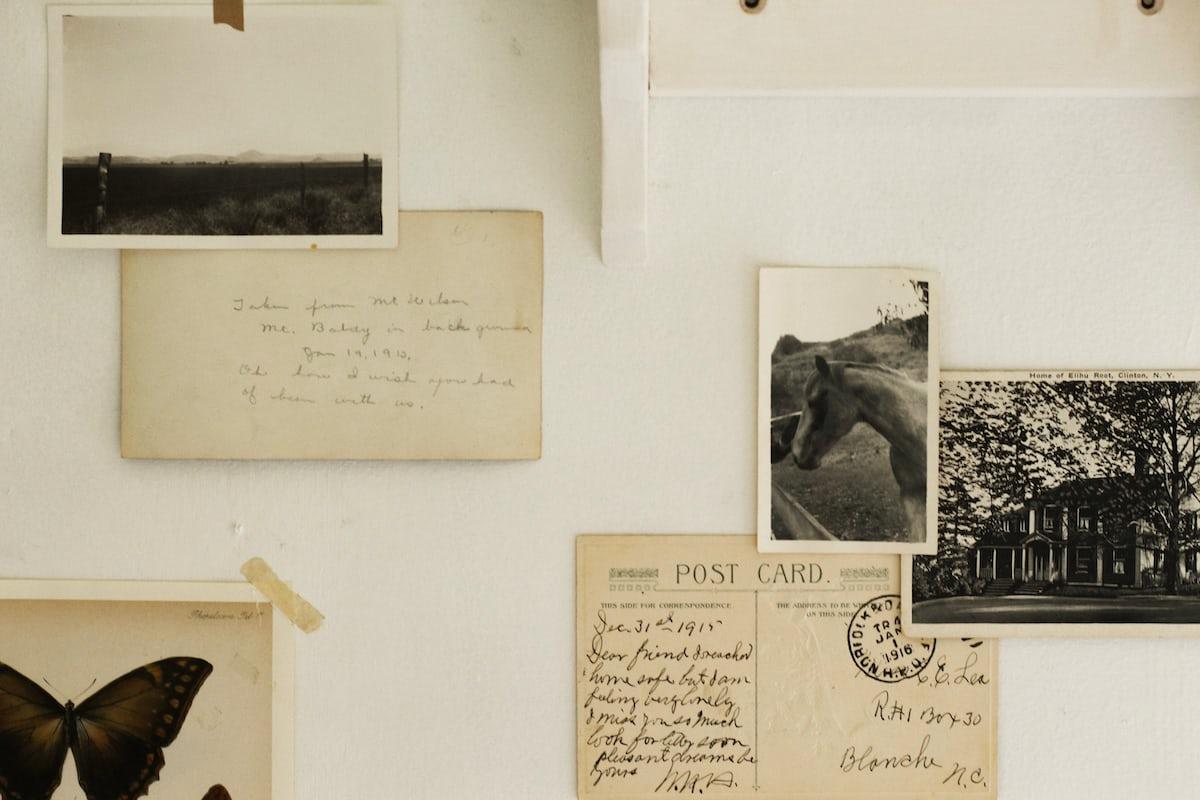 Taken from Mt Wilson
Mt. Baldy in back ground
Jan 19, 191
Oh how I wish you had
of been with us.
Home of Elihu Root, Clinton, N. Y.
POST CARD.
THIS SIDE FOR CORRESPONDENCE
THE ADDRESS TO BE
ON THIS SIDE
Dec. 31st 1915
Dear friend I reached
home safe but I am
feeling very lonely
I miss you so much
look for letter soon
pleasant dreams be
yours W.H.H.
NORFOLK & DA
TRA
JAN
1
1916
R.P.O.
C. E. Lea
R#1 Box 30
Blanche N.C.